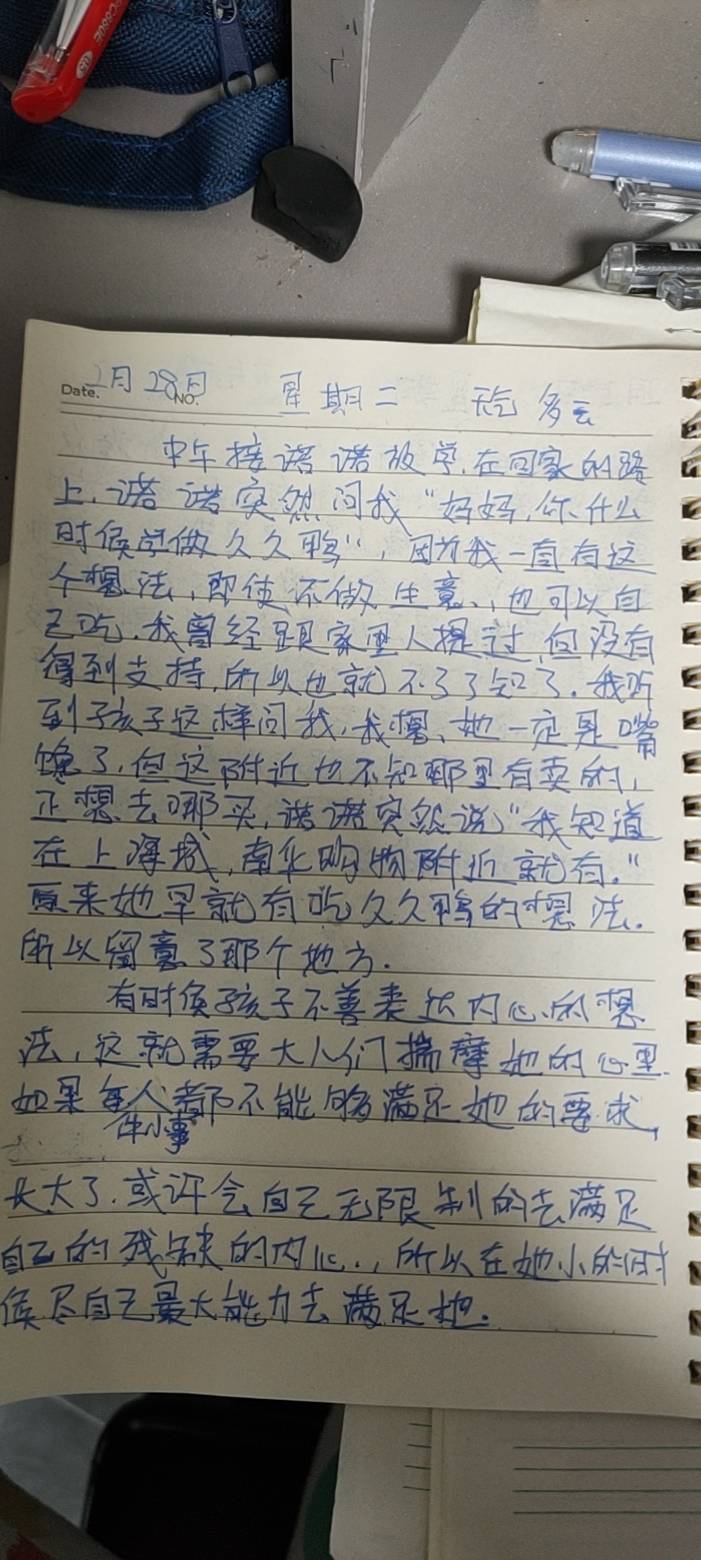 Date.
2月28日 星期二 天气 多云
NO.
中午接诺诺放学,在回家的路
上,诺诺突然问我“妈妈,你什么
时候学做久久鸭”,因为我一直有这
个想法,即使不做生意,也可以自
己吃,我曾经跟家里人提过,但没有
得到支持,所以也就不了了知了。我听
到孩子这样问我,我想,她一定是嘴
馋了,但这附近也不知哪里有卖的,
正想去哪买,诺诺突然说“我知道
在上海城,南华购物附近就有。”
原来她早就有吃久久鸭的想法,
所以留意了那个地方.
有时侯孩子不善表达内心的想
法,这就需要大人们揣摩她的心里.
如果每人都不能够满足她的要求,
件小事
长大了.或许会自己无限制的去满足
自己的残缺的内心..所以在她小的时
候尽自己最大能力去满足她.